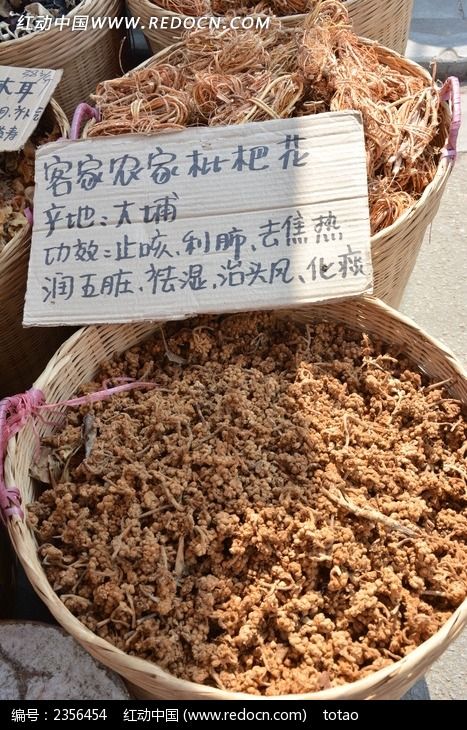 红动中国 WWW.REDOCN.COM
木耳
客家农家枇杷花
产地：大埔
功效：止咳、利肺、去焦热
润五脏、祛湿、治头风、化痰
编号：2356454 红动中国 (www.redocn.com) totao